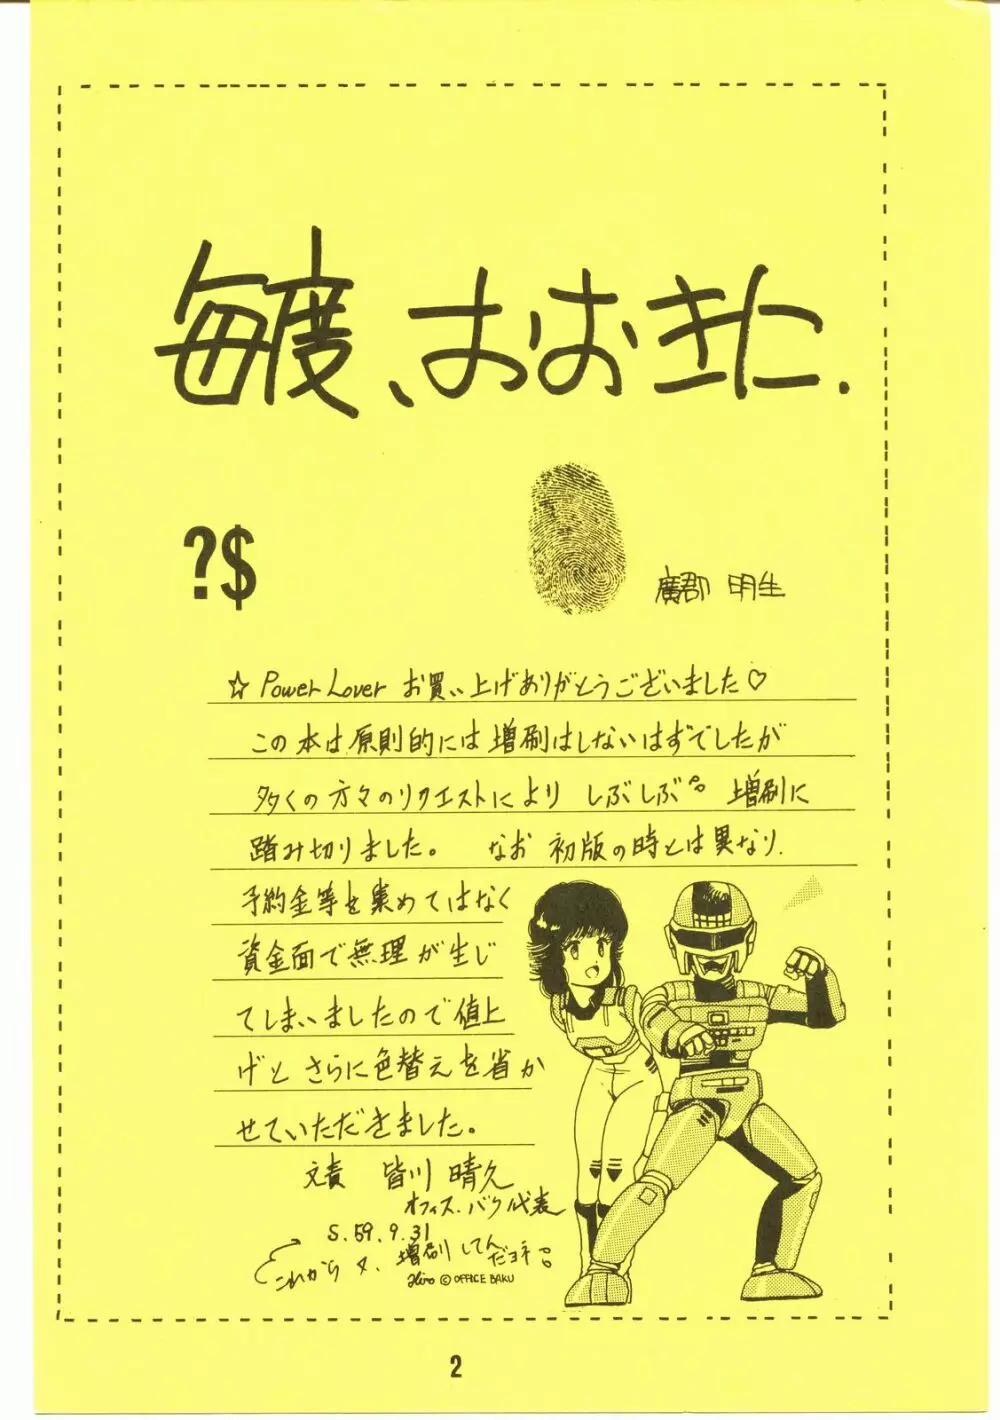 毎度、おおきに.
?$
廣郡 明生
☆ Power Lover お買い上げありがとうございました♡
この本は、原則的には増刷はしないはずでしたが
多くの方々のリクエストにより しぶしぶ 増刷に
踏み切りました。 なお 初版の時とは異なり、
予約金等を集めてはなく
資金面で無理が生じ
てしまいましたので値上
げと さらに色替えを省か
せていただきました。
文責 皆川 晴久
オフィス.バク代表
S.59.9.31
これから 増刷 してんだヨネ
Hiro © OFFICE BAKU
2